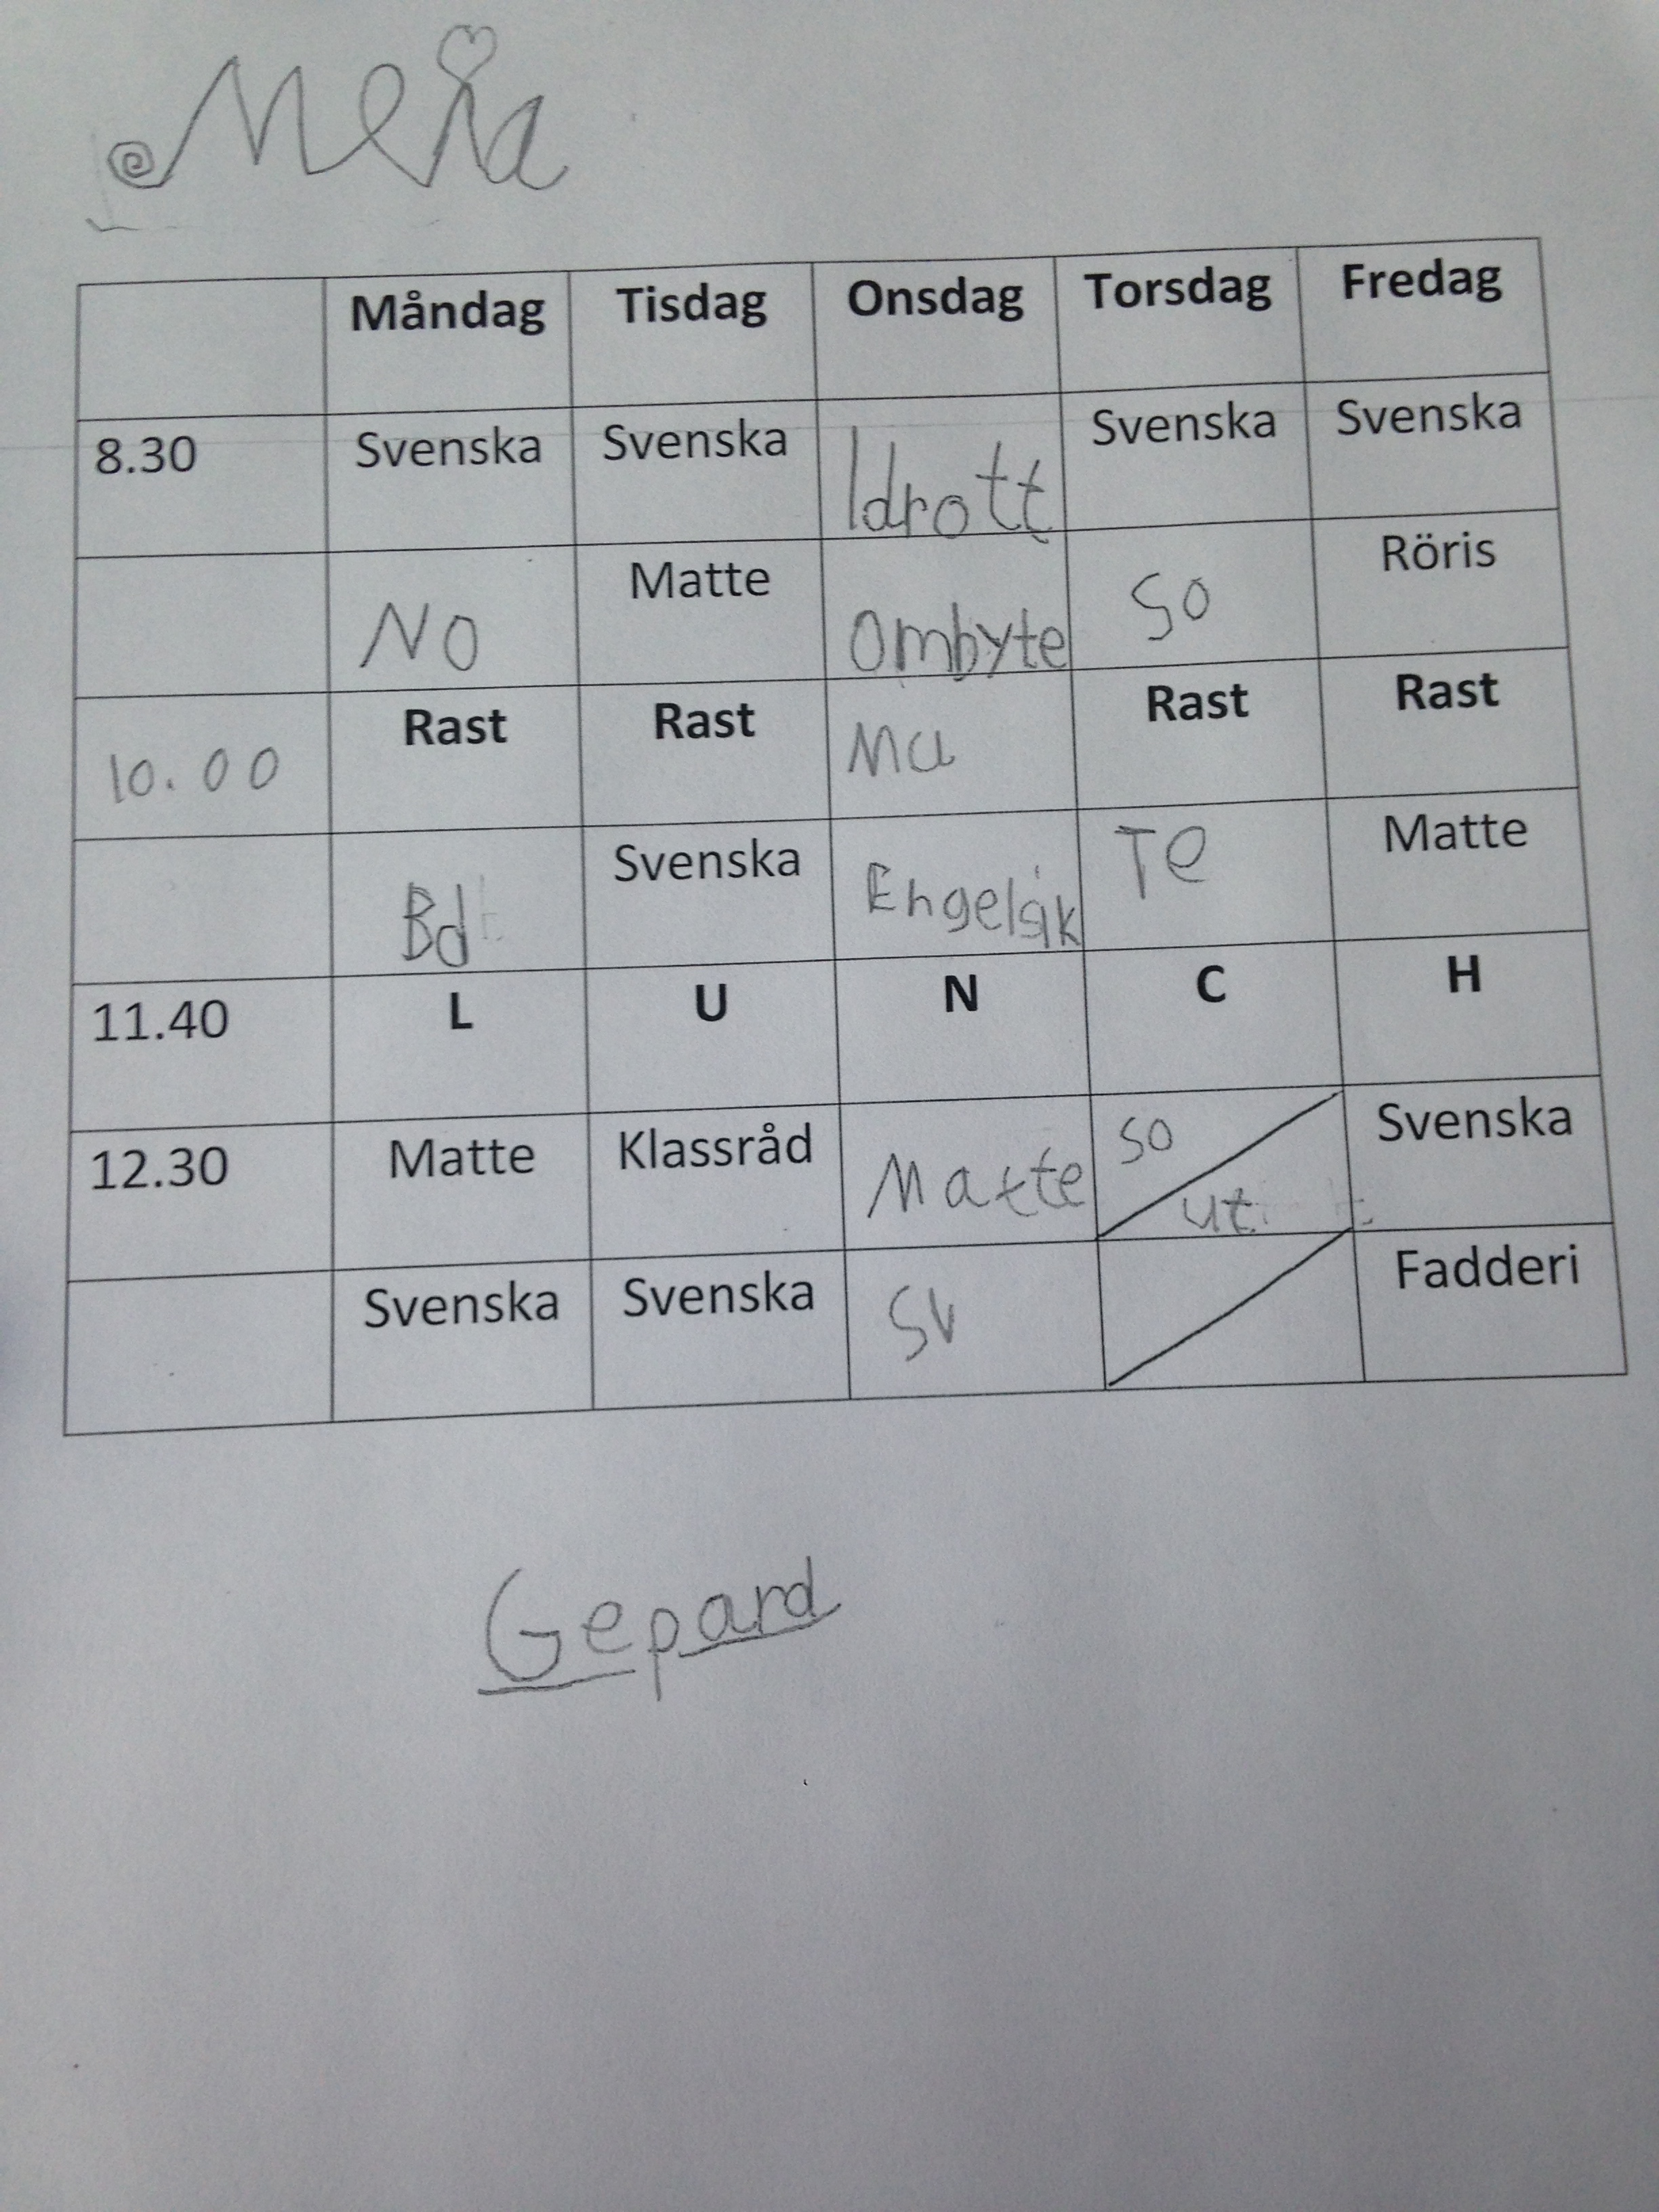 Meja
Måndag Tisdag Onsdag Torsdag Fredag
8.30 Svenska Svenska Idrott Svenska Svenska
NO Matte Ombyte SO Röris
10.00 Rast Rast Mu Rast Rast
Bd Svenska Engelsik Te Matte
11.40 L U N C H
12.30 Matte Klassråd Matte SO ut Svenska
Svenska Svenska SV Fadderi
Gepard